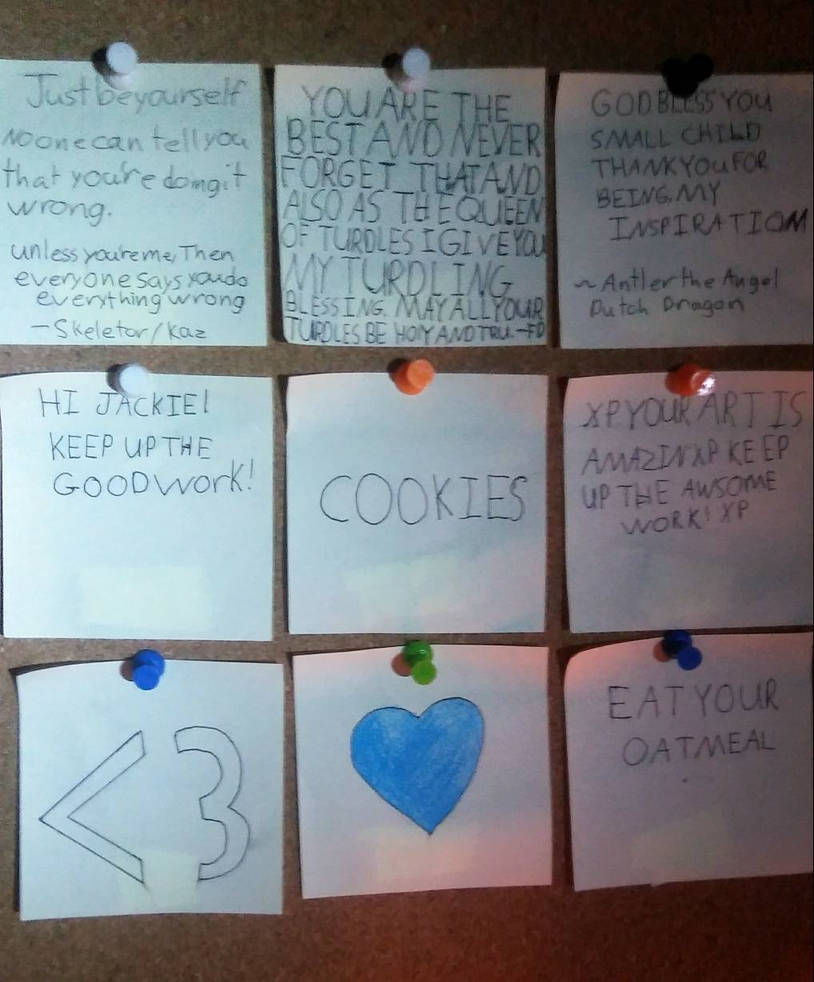 Just be yourself
No one can tell you
that you're doing it
wrong.
unless you're me, Then
everyone says you do
everything wrong
- Skeletor/Kaz
YOU ARE THE
BEST AND NEVER
FORGET THAT AND
ALSO AS THE QUEEN
OF TURDLES I GIVE YOU
MY TURDLING
BLESSING. MAY ALL YOUR
TURDLES BE HOLY AND TRU. -FD
GOD BLESS YOU
SMALL CHILD
THANK YOU FOR
BEING MY
INSPIRATION
~ Antler the Angel
Dutch Dragon
HI JACKIE!
KEEP UP THE
GOOD WORK!
COOKIES
XP YOUR ART IS
AMAZIN XP KEEP
UP THE AWSOME
WORK! XP
<3
EAT YOUR
OATMEAL